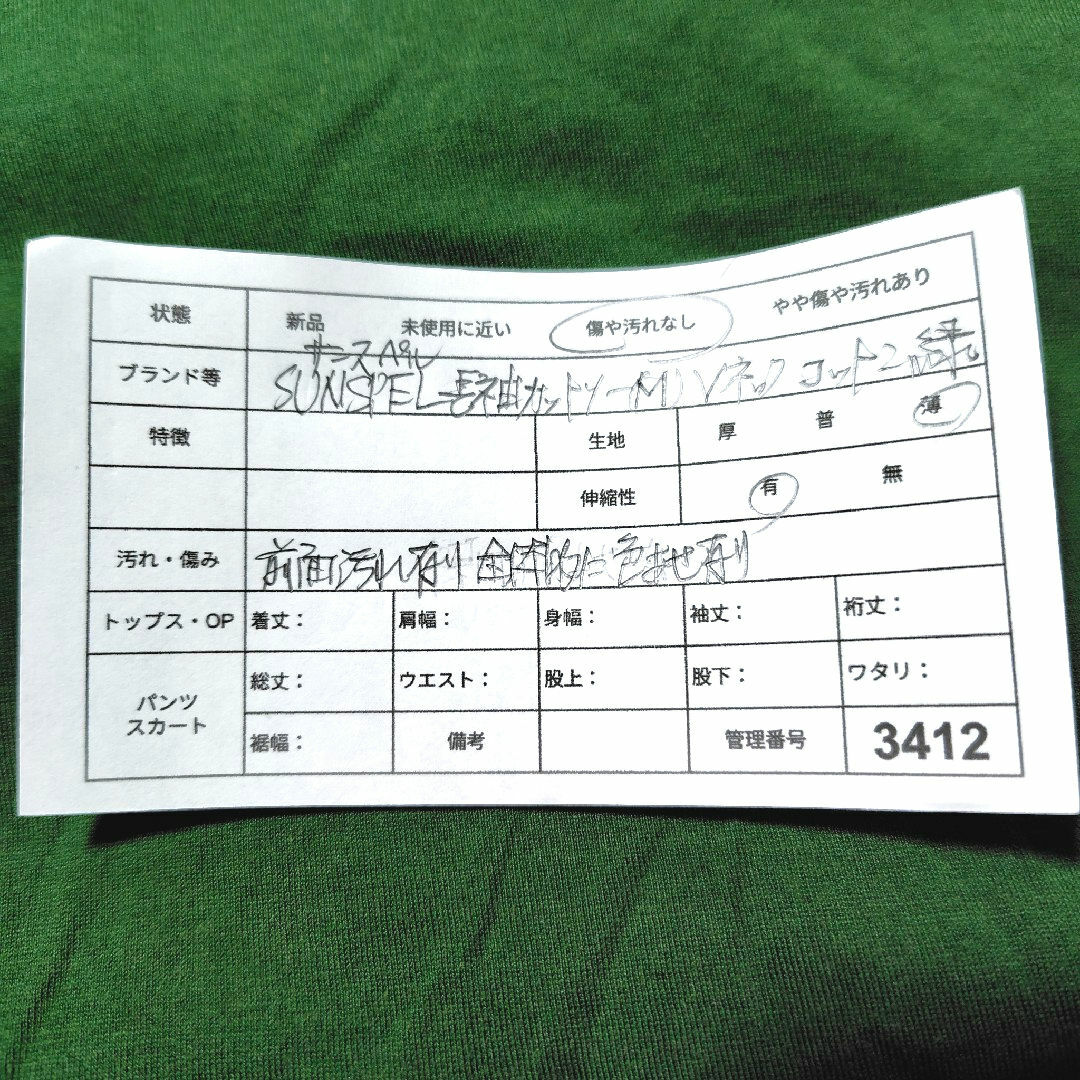 状態 新品 未使用に近い 傷や汚れなし やや傷や汚れあり
サンスペル
ブランド等 SUNSPEL 長袖カットソー M Vネック コットン 緑
特徴 生地 厚 普 薄
伸縮性 有 無
汚れ・傷み 前面汚れ有り 全体的に色あせ有り
トップス・OP 着丈： 肩幅： 身幅： 袖丈： 裄丈：
パンツ スカート 総丈： ウエスト： 股上： 股下： ワタリ：
裾幅： 備考 管理番号 3412